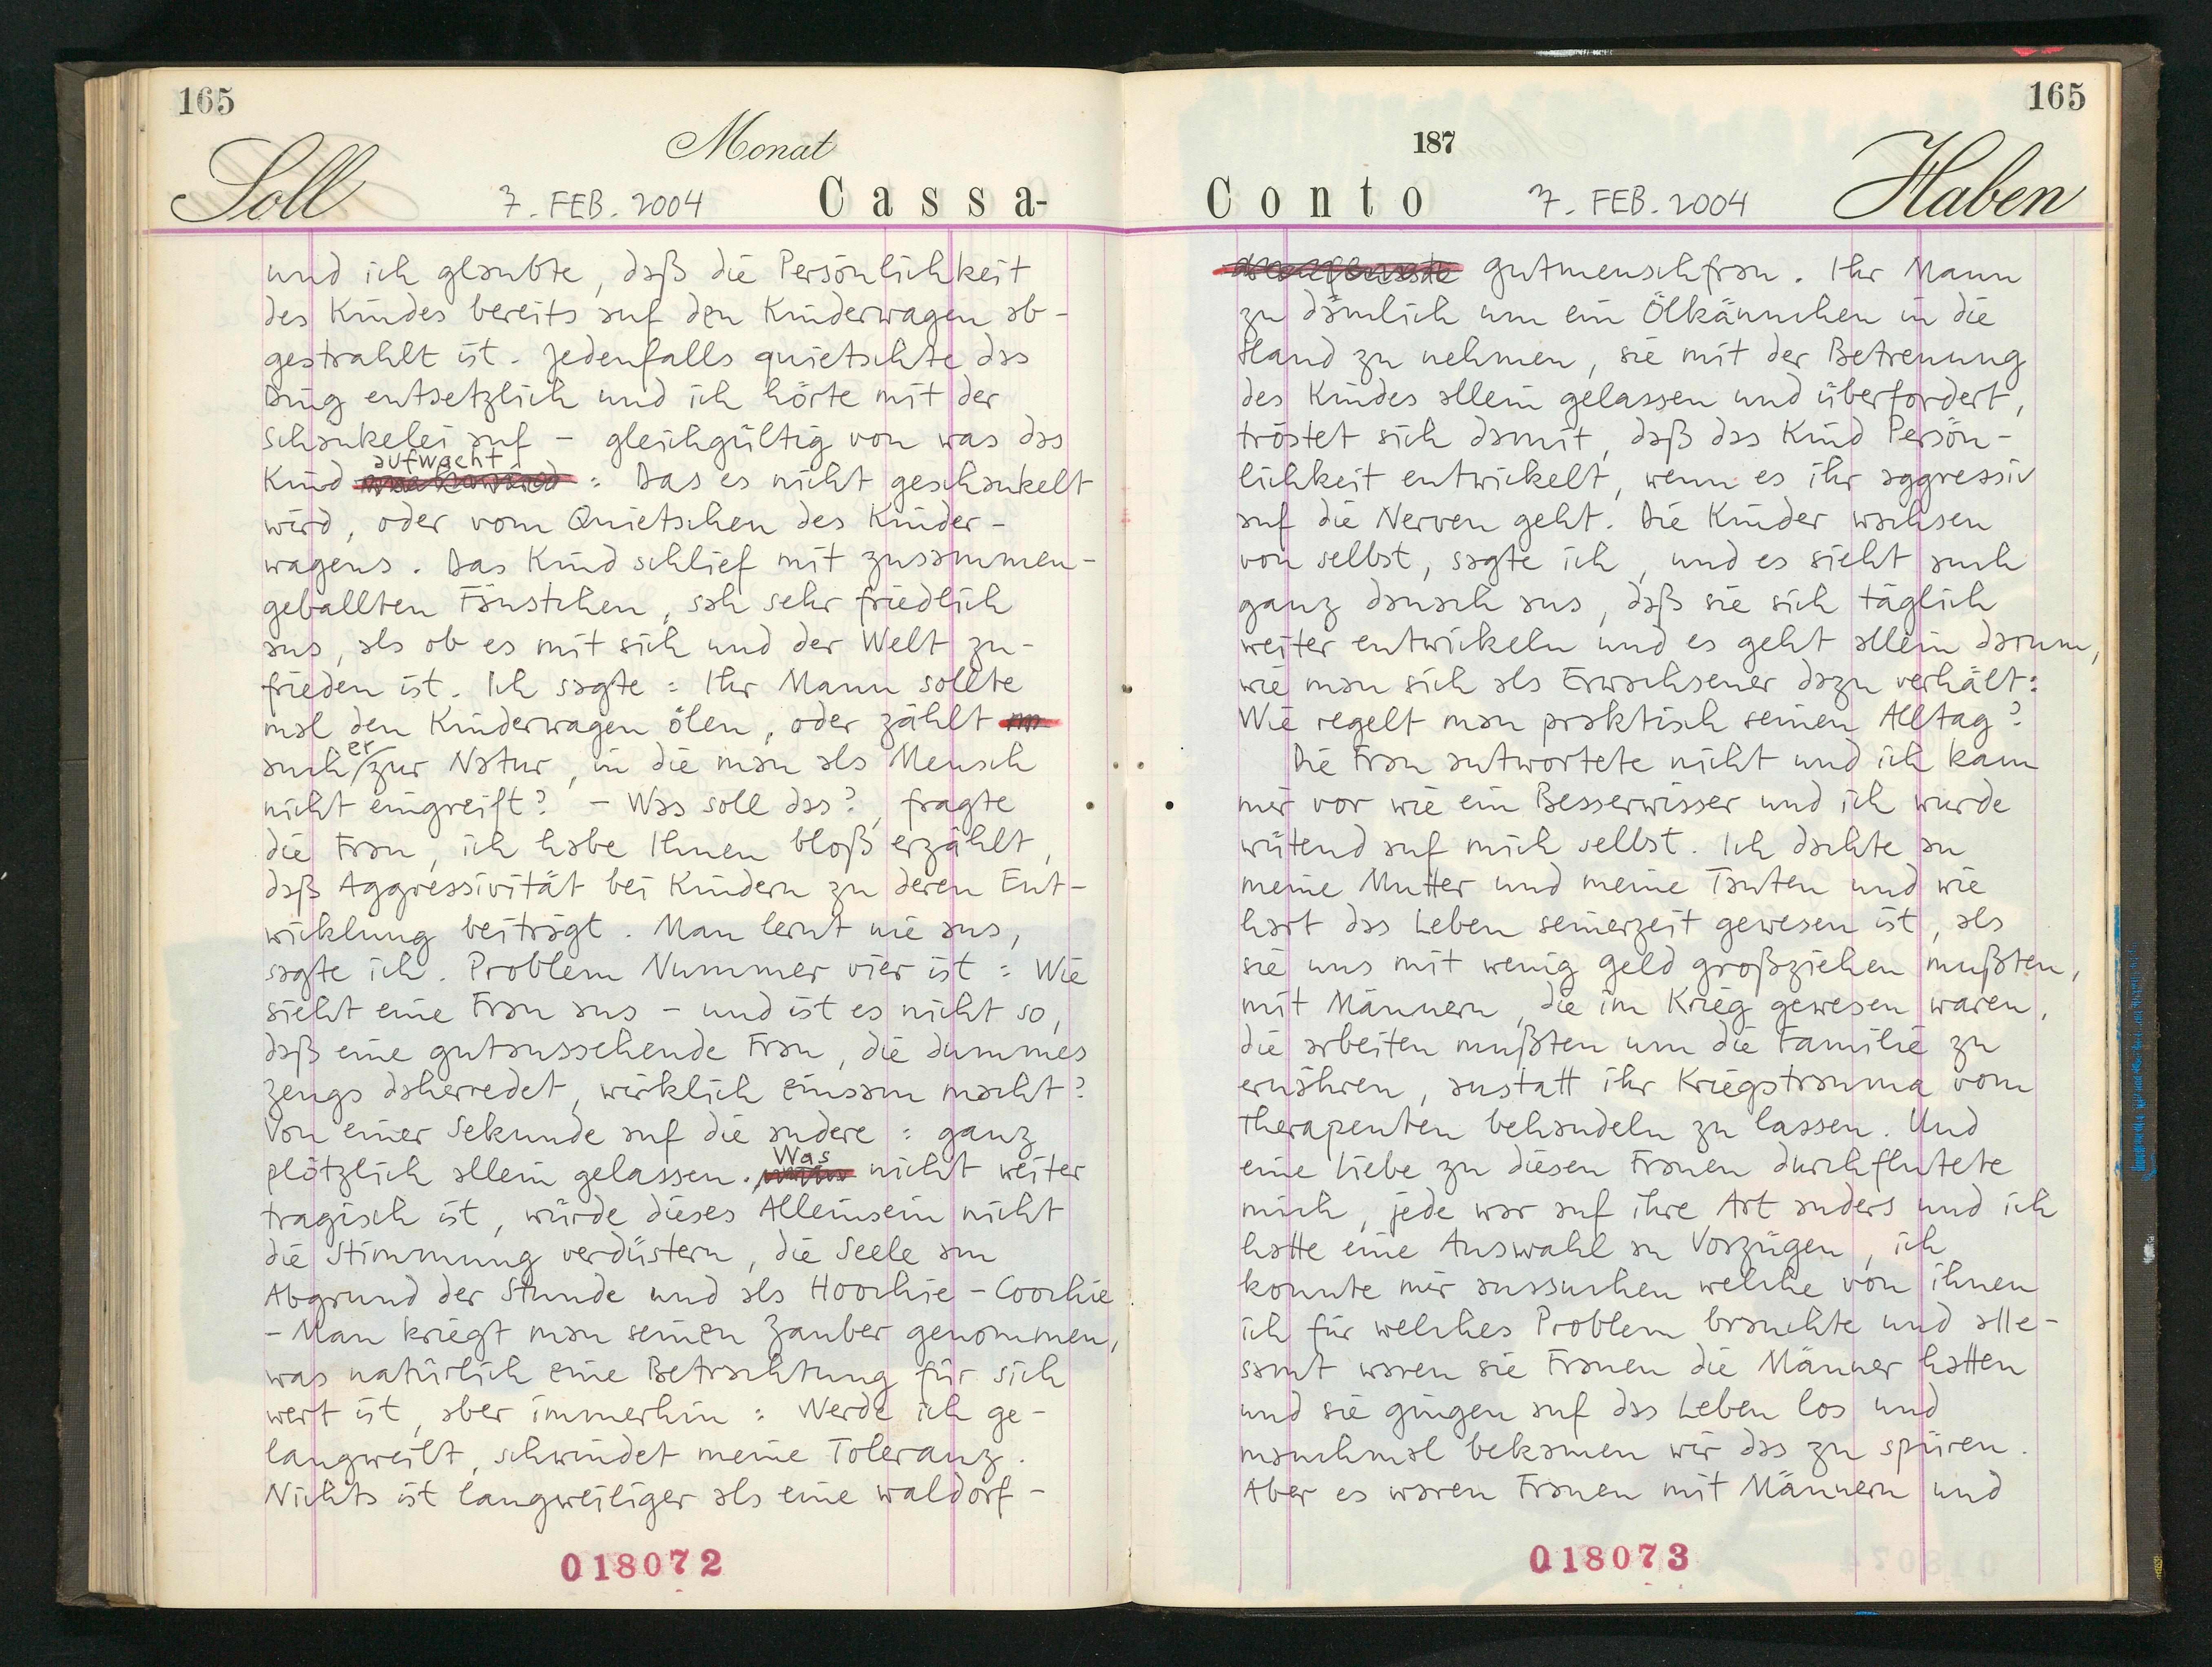 165
Monat
Soll
7. FEB. 2004
Cassa-
und ich glaubte, daß die Persönlichkeit
des Kindes bereits auf den Kinderwagen ab-
gestrahlt ist. Jedenfalls quietschte das
Ding entsetzlich und ich hörte mit der
Schaukelei auf – gleichgültig von was das
Kind aufwacht : Das es nicht geschaukelt
wird, oder vom Quietschen des Kinder-
wagens. Das Kind schlief mit zusammen-
geballten Fäustchen, sah sehr friedlich
aus, als ob es mit sich und der Welt zu-
frieden ist. Ich sagte : Ihr Mann sollte
mal den Kinderwagen ölen, oder zählt
auch er zur Natur, in die man als Mensch
nicht eingreift? – Was soll das?, fragte
die Frau, ich habe Ihnen bloß erzählt,
daß Aggressivität bei Kindern zu deren Ent-
wicklung beiträgt. Man lernt nie aus,
sagte ich. Problem Nummer vier ist : Wie
sieht eine Frau aus – und ist es nicht so,
daß eine gutaussehende Frau, die dummes
Zeugs daherredet, wirklich einsam macht?
Von einer Sekunde auf die andere : ganz
plötzlich allein gelassen. Was nicht weiter
tragisch ist, würde dieses Alleinsein nicht
die Stimmung verdüstern, die Seele am
Abgrund der Stunde und als Hoochie-Coochie
-Man kriegt man seinen Zauber genommen,
was natürlich eine Betrachtung für sich
wert ist, aber immerhin : Werde ich ge-
langweilt, schwindet meine Toleranz.
Nichts ist langweiliger als eine waldorf-
018072
165
187
Conto
7. FEB. 2004
Haben
gutmenschfrau. Ihr Mann
zu dämlich um ein Ölkännchen in die
Hand zu nehmen, sie mit der Betreuung
des Kindes allein gelassen und überfordert,
tröstet sich damit, daß das Kind Persön-
lichkeit entwickelt, wenn es ihr aggressiv
auf die Nerven geht. Die Kinder wachsen
von selbst, sagte ich, und es sieht auch
ganz danach aus, daß sie sich täglich
weiter entwickeln und es geht allein darum,
wie man sich als Erwachsener dazu verhält:
Wie regelt man praktisch seinen Alltag?
Die Frau antwortete nicht und ich kam
mir vor wie ein Besserwisser und ich wurde
wütend auf mich selbst. Ich dachte an
meine Mutter und meine Tanten und wie
hart das Leben seinerzeit gewesen ist, als
sie uns mit wenig Geld großziehen mußten,
mit Männern, die im Krieg gewesen waren,
die arbeiten mußten um die Familie zu
ernähren, anstatt ihr Kriegstrauma vom
Therapeuten behandeln zu lassen. Und
eine Liebe zu diesen Frauen durchflutete
mich, jede war auf ihre Art anders und ich
hatte eine Auswahl an Vorzügen, ich
konnte mir aussuchen welche von ihnen
ich für welches Problem brauchte und alle-
samt waren sie Frauen die Männer hatten
und sie gingen auf das Leben los und
manchmal bekamen wir das zu spüren.
Aber es waren Frauen mit Männern und
018073